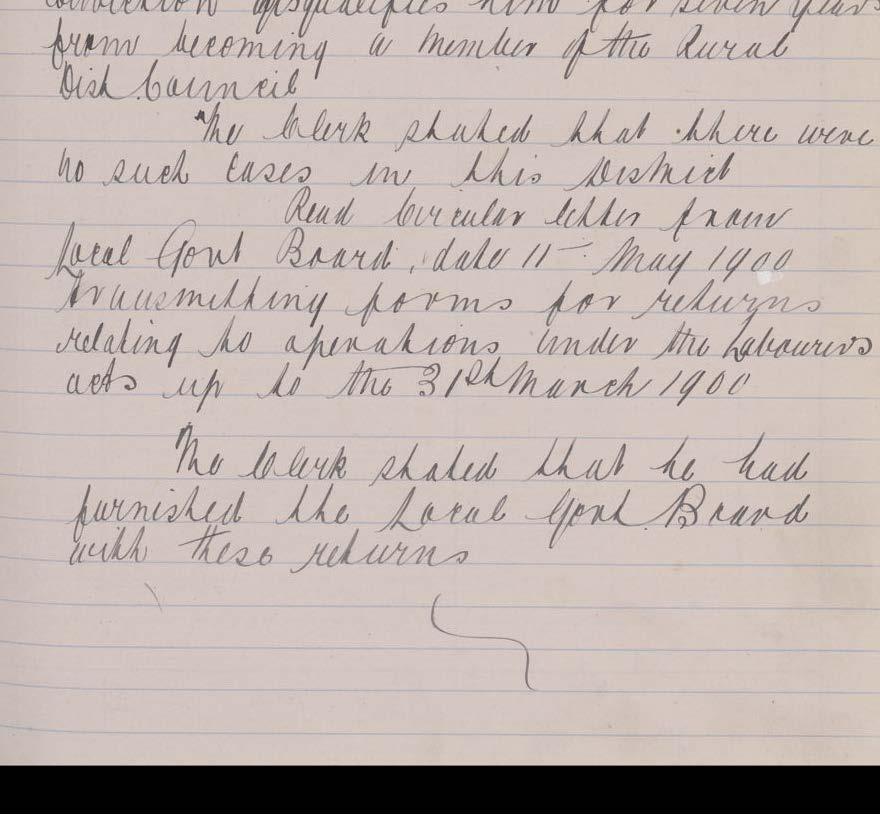 conviction disqualifies him for seven years
from becoming a Member of the Rural
Dist. Council
The Clerk stated that there were
no such cases in this District
Read Circular letter from
Local Govt Board, date 11th May 1900
transmitting forms for returns
relating to operations under the Labourers
acts up to the 31st March 1900
The Clerk stated that he had
furnished the Local Govt Board
with these returns